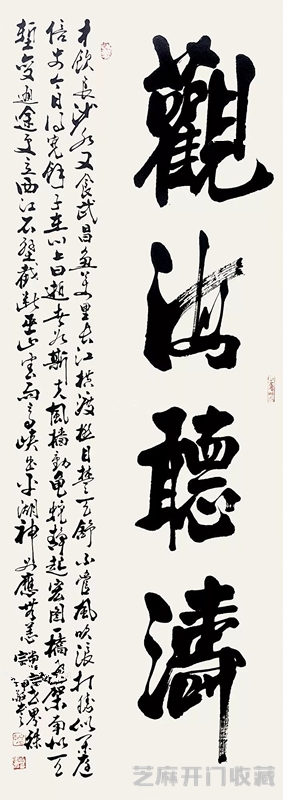 觀海聽濤
才飲長沙水又食武昌魚萬里長江橫渡極目楚天舒不管風吹浪打勝似閒庭
信步今日得寬餘子在川上曰逝者如斯夫風檣動龜蛇靜起宏圖一橋飛架南北天
塹變通途更立西江石壁截斷巫山雲雨高峽出平湖神女應無恙當驚世界殊
芝麻开门收藏